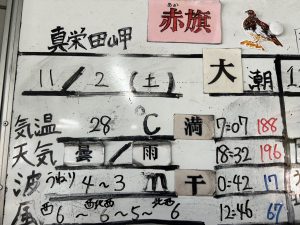 真栄田岬
赤旗
あか
11/2(土)
大潮
気温 28 C 満 7:07 188
天気 曇/雨 18:32 196
波 うねり 4~3 m 干 0:42 17
風 西6~西北西6~5~北西6 12:46 67